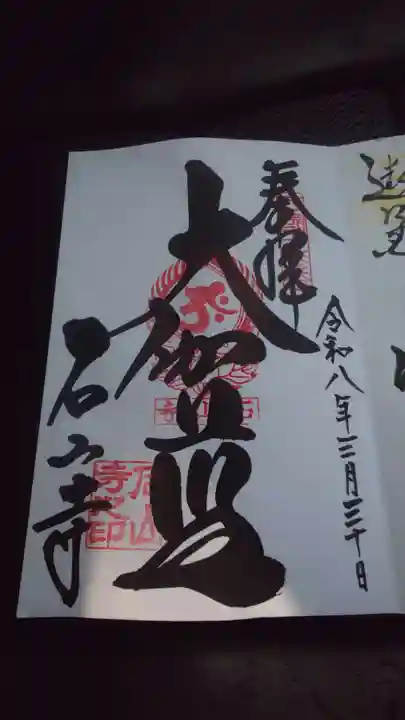 奉拝
令和八年三月三十日
大伽藍
石山寺
石山寺
石山寺之印